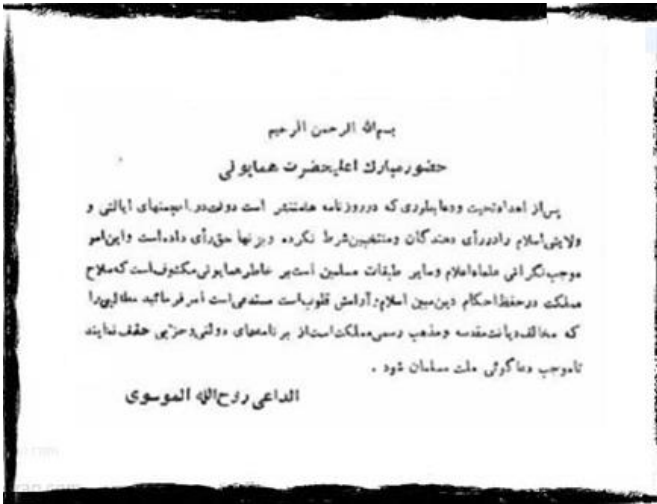 بسم‌الله الرحمن الرحیم
حضور مبارك اعلیحضرت همایونی
پس‌از اهداءتحیت ودعا بطوری که درروزنامه هامنتشر است دولت‌در انجمنهای ایالتی و
ولایتی‌اسلام رادررأی دهندگان ومنتخبین‌شرط نکرده وبزنها حق‌رأی داده‌است واین‌امر
موجب‌نگرانی علماءاعلام وسایر طبقات مسلمین است‌بر خاطرهمایونی‌مکشوف‌است که‌صلاح
مملکت درحفظ‌احکام دین‌مبین اسلام‌وآرامش قلوب‌است مستدعی‌است امرفرمائید مطالبی‌را
که مخالف‌دیانت‌مقدسه ومذهب رسمی‌مملکت‌است‌از برنامه‌های دولتی‌وحزبی حذف‌نمایند
تاموجب دعاگوئی ملت مسلمان شود .
الداعی روح‌الله الموسوی